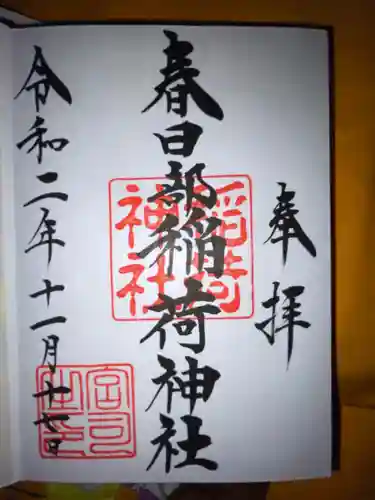 奉拝
春日部稲荷神社
稲荷神社
令和二年十一月十七日
宮司之印